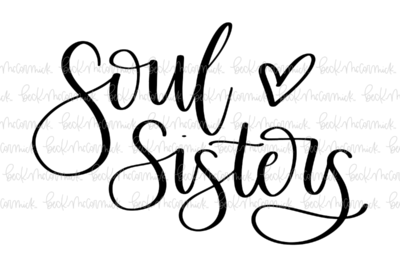 Soul
Sisters